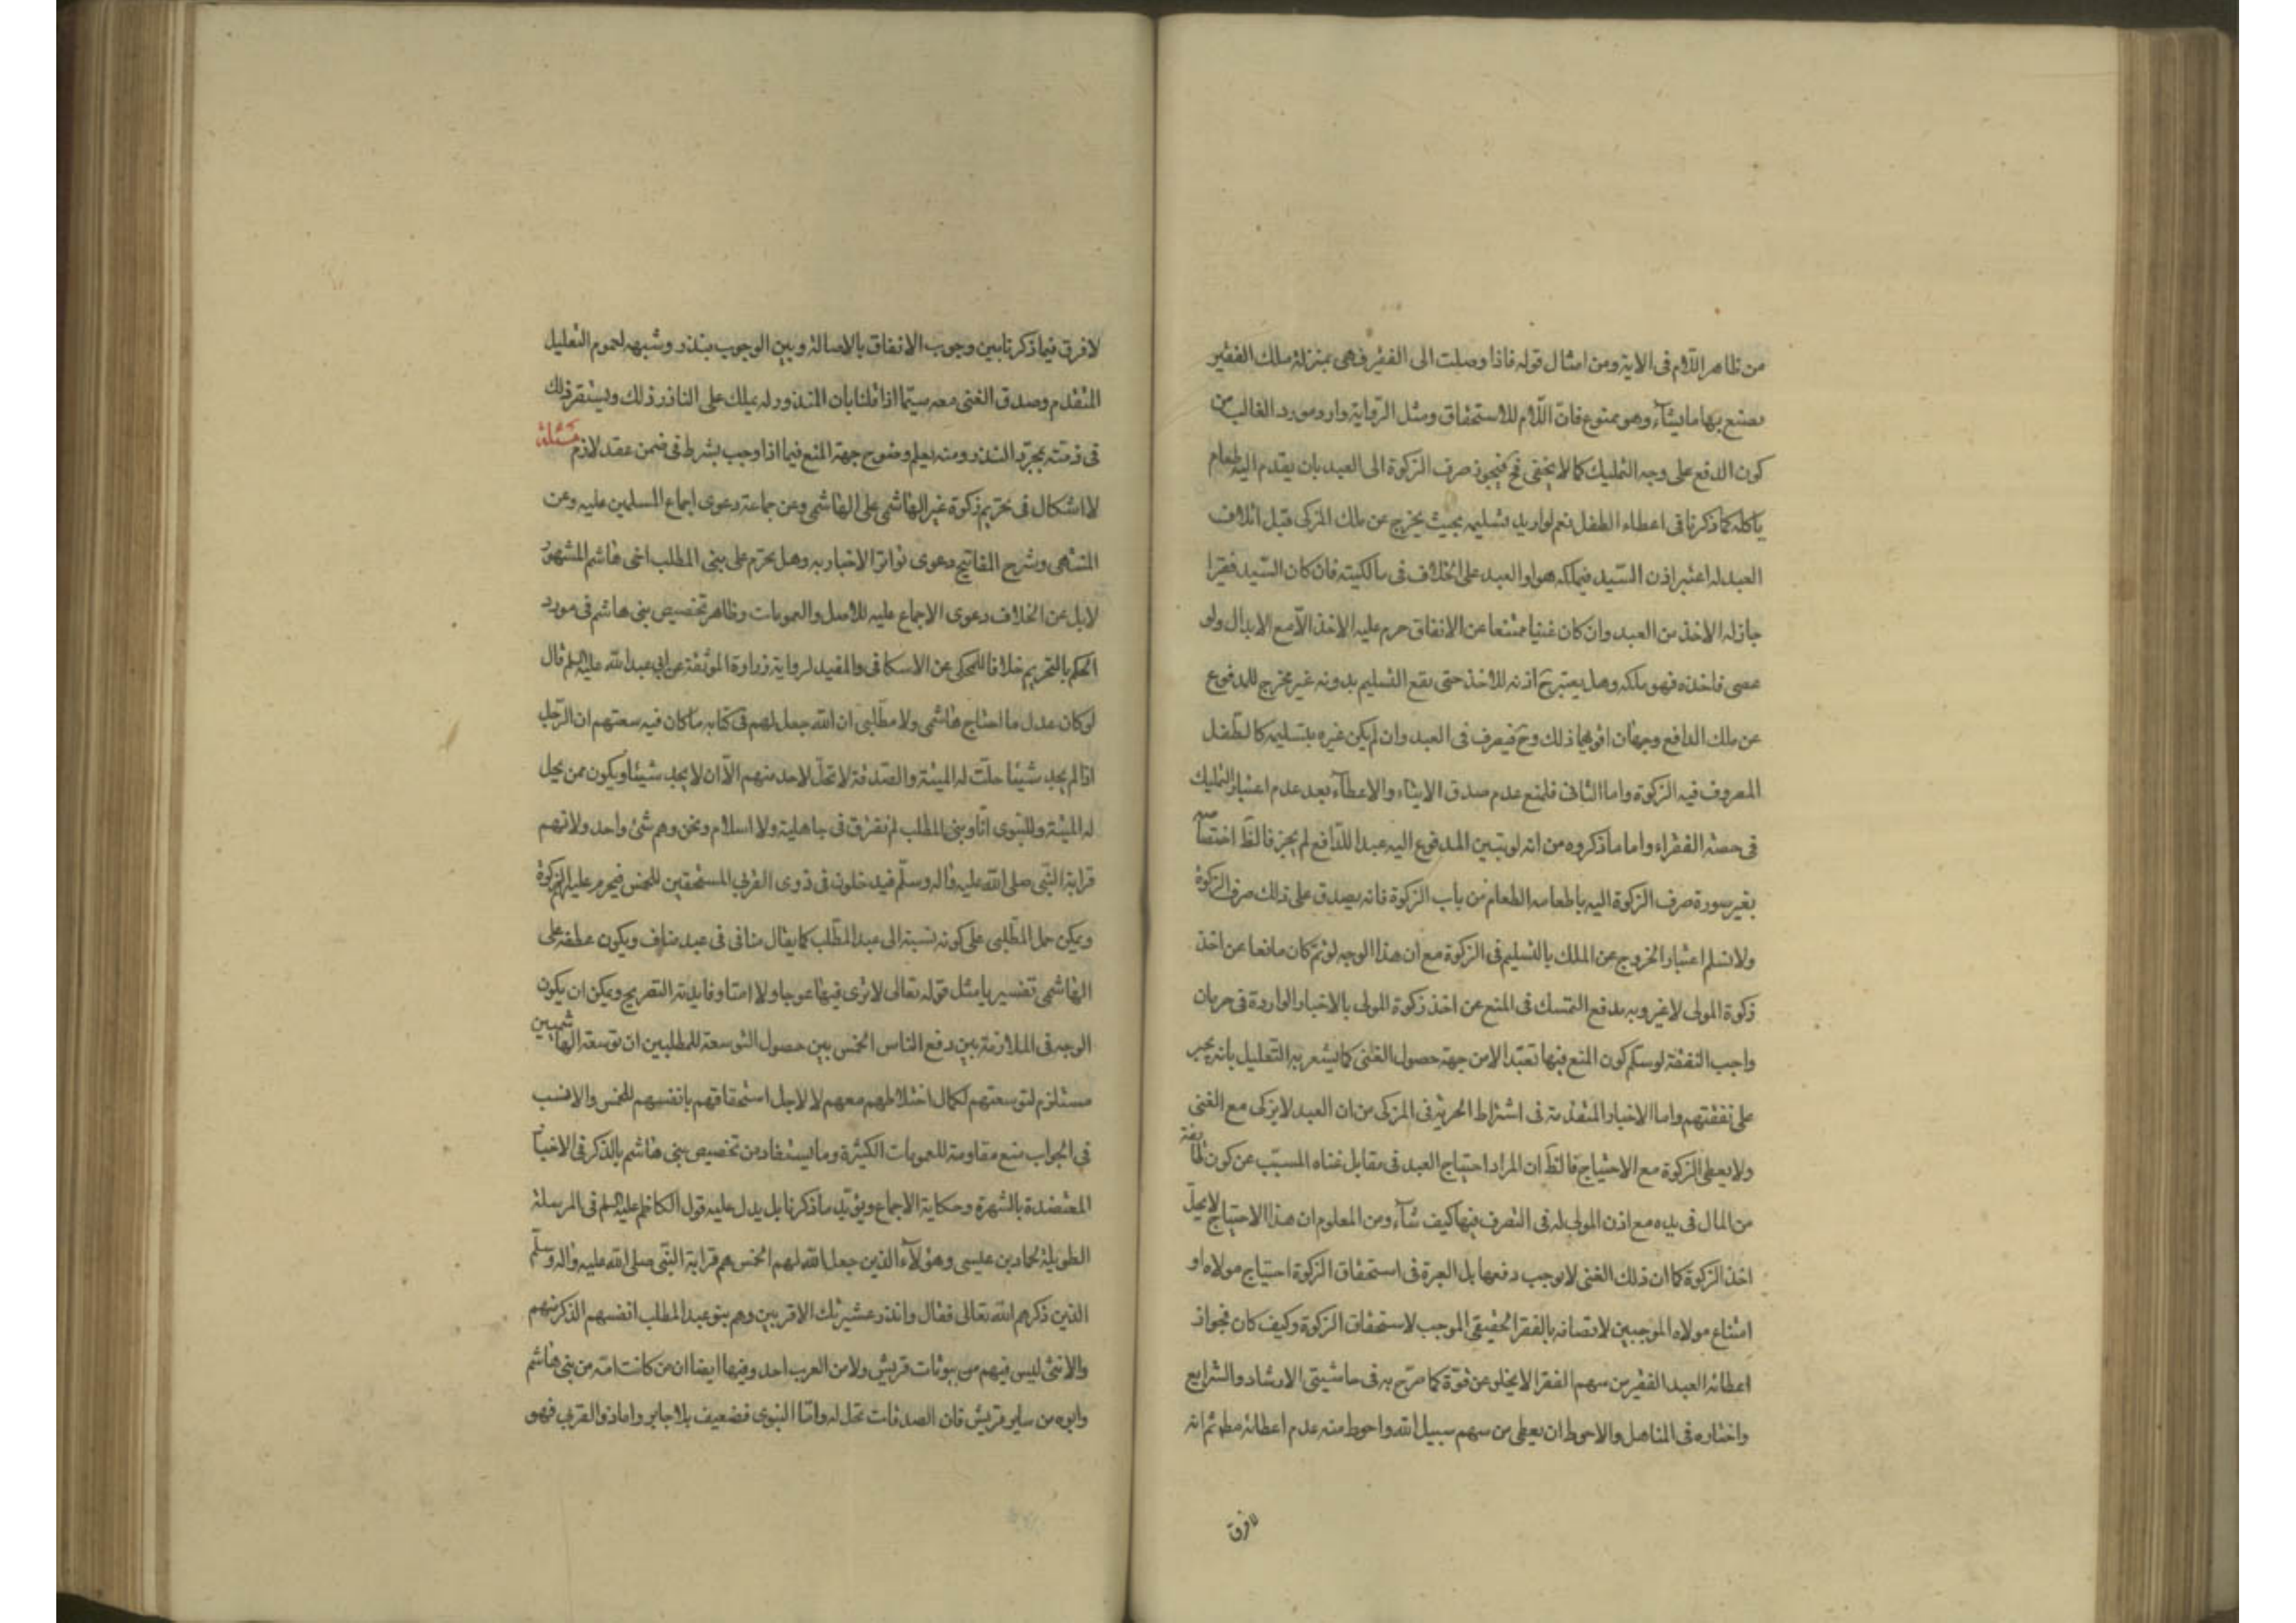 من ظاهر اللام فى الاية ومن امثال قوله فاذا وصلت الى الفقير فهى بمنزلة ملك الفقير
يصنع بها ما يشآء وهو ممنوع فان اللام للاستحقاق ومثل الرواية وارد مورد الغالب من
كون الدفع على وجه التمليك كما لا يخفى فح فيجوز صرف الزكوة الى العبد بان يقدم اليه طعام
ياكله كما ذكرنا فى اعطاء الطفل نعم لو اريد تسليمه بحيث يخرج عن ملك المزكى قبل اتلاف
العبد له اعتبر اذن السيد فيملكه هو او العبد على الخلاف فى مالكيته فان كان السيد فقيرا
جاز له الاخذ من العبد وان كان غنيا ممتنعا عن الانفاق حرم عليه الاخذ الا مع الابدال ولو
عصى فاخذه فهو ملكه وهل يعتبر ح اذنه للاخذ حتى يقع التسليم بدونه غير مخرج للمدفوع
عن ملك الدافع وجهان اقويهما ذلك وح فيصرف فى العبد وان لم يكن غيره بتسليمه كالطفل
المصروف فيه الزكوة واما الثانى فلمنع عدم صدق الايتاء والاعطآء بعد عدم اعتبار التمليك
فى حصة الفقراء واما ما ذكروه من انه لو تبين المدفوع اليه عبدا للدافع لم يجز فالظ اختصاصه
بغير صورة صرف الزكوة اليه باطعامه الطعام من باب الزكوة فانه يصدق على ذلك صرف الزكوة
ولا نسلم اعتبار الخروج عن الملك بالتسليم فى الزكوة مع ان هذا الوجه لو تم كان مانعا عن اخذ
زكوة المولى لا غير وبه يدفع التمسك فى المنع عن اخذ زكوة المولى بالاخبار الواردة فى حرمان
واجب النفقة لو سلم كون المنع فيها تعبدا لا من جهة حصول الغنى كما يشعر به التعليل بانه يجبر
على نفقتهم واما الاخبار المتقدمة فى اشتراط الحرية فى المزكى من ان العبد لا يزكى مع الغنى
ولا يعطى الزكوة مع الاحتياج فالظ ان المراد احتياج العبد فى مقابل غناه المسبب عن كون طائفة
من المال فى يده مع اذن المولى له فى التصرف فيها كيف شآء ومن المعلوم ان هذا الاحتياج لا يحل
اخذ الزكوة كما ان ذلك الغنى لا يوجب دفعها بل العبرة فى استحقاق الزكوة احتياج مولاه او
امتناع مولاه الموجبين لاتصافه بالفقر الحقيقى الموجب لاستحقاق الزكوة وكيف كان فجواز
اعطائه العبد الفقير من سهم الفقرا لا يخلو عن قوة كما صرح به فى حاشيتى الارشاد والشرايع
واختاره فى المناهل والاحوط ان يعطى من سهم سبيل الله واحوط منه عدم اعطائه مطم ثم انه
لا فرق
لا فرق فيما ذكرنا بين وجوب الانفاق بالاصالة وبين الوجوب بنذر وشبهه لعموم التعليل
المتقدم وصدق الغنى معه سيما اذا قلنا بان المنذور له يملك على الناذر ذلك ويستقر ذلك
فى ذمته بمجرد النذر ومنه يعلم وضوح جهة المنع فيما اذا وجب بشرط فى ضمن عقد لازم مسئلة
لا اشكال فى تحريم زكوة غير الهاشمى على الهاشمى وعن جماعة دعوى اجماع المسلمين عليه وعن
المنتهى وشرح المفاتيح دعوى تواتر الاخبار به وهل يحرم على بنى المطلب اخى هاشم المشهور
لا بل عن الخلاف دعوى الاجماع عليه للاصل والعمومات وظاهر تخصيص بنى هاشم فى مورد
الحكم بالتحريم خلافا للمحكى عن الاسكافى والمفيد لرواية زرارة الموثقة عن ابى عبد الله عليه السلم قال
لو كان عدل ما احتاج هاشمى ولا مطلبى ان الله جعل لهم فى كتابه ما كان فيه سعتهم ان الرجل
اذا لم يجد شيئا حلت له الميتة والصدقة لا تحل لاحد منهم الا ان لا يجد شيئا ويكون ممن يحل
له الميتة وللنبوى انا وبنى المطلب لم نفترق فى جاهلية ولا اسلام ونحن وهم شئ واحد ولانهم
قرابة النبى صلى الله عليه واله وسلم فيدخلون فى ذوى القربى المستحقين للخمس فيحرم عليهم الزكوة
ويمكن حمل المطلبى على كونه نسبة الى عبد المطلب كما يقال منافى فى عبد مناف ويكون عطفه على
الهاشمى تفسيريا مثل قوله تعالى لا ترى فيها عوجا ولا امتا وفايدته التصريح ويمكن ان يكون
الوجه فى الملازمة بين دفع الناس الخمس بين حصول التوسعة للمطلبيين ان توسعة الهاشميين
مستلزم لتوسعتهم لكمال اختلاطهم معهم لا لاجل استحقاقهم بانفسهم للخمس والانسب
فى الجواب منع مقاومته للعمومات الكثيرة وما يستفاد من تخصيص بنى هاشم بالذكر فى الاخبار
المعتضدة بالشهرة وحكاية الاجماع ويؤيد ما ذكرنا بل يدل عليه قول الكاظم عليه السلم فى المرسلة
الطويلة لحماد بن عيسى وهؤلآء الذين جعل الله لهم الخمس هم قرابة النبى صلى الله عليه واله وسلم
الذين ذكرهم الله تعالى فقال وانذر عشيرتك الاقربين وهم بنو عبد المطلب انفسهم الذكر منهم
والانثى ليس فيهم من بيوتات قريش ولا من العرب احد وفيها ايضا ان من كانت امه من بنى هاشم
وابوه من ساير قريش فان الصدقات تحل له واما النبوى فضعيف بلا جابر واما ذو القربى فهو